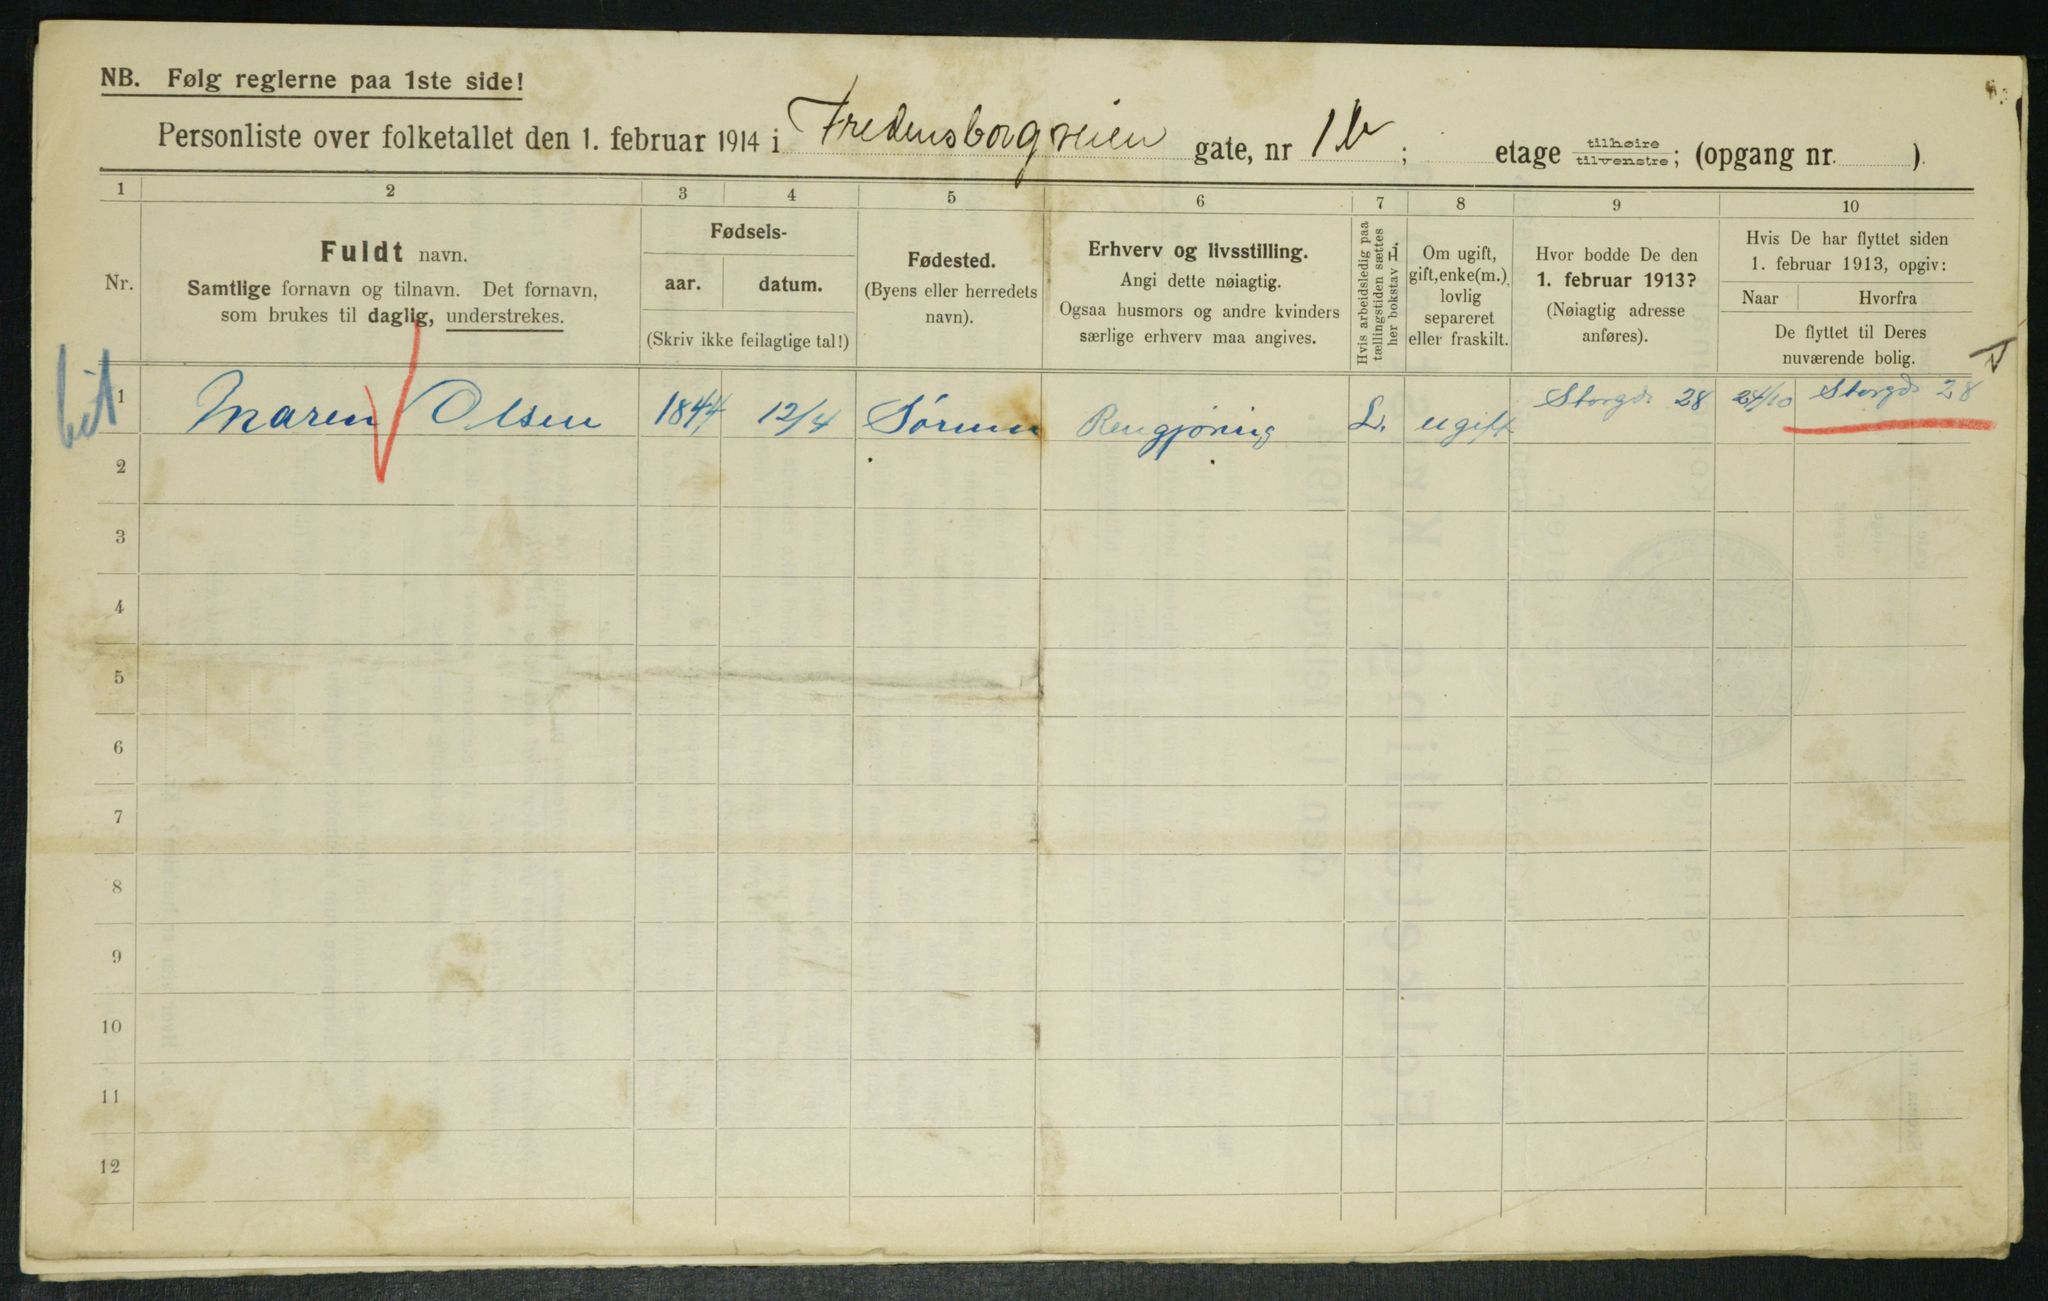 NB. Følg reglerne paa 1ste side!
Personliste over folketallet den 1. februar 1914 i Fredensborgveien gate, nr 1b; etage tilhøire tilvenstre; (opgang nr. ).
1 2 3 4 5 6 7 8 9 10
Nr.
Fuldt navn.
Samtlige fornavn og tilnavn. Det fornavn,
som brukes til daglig, understrekes.
Fødsels-
aar. datum.
(Skriv ikke feilagtige tal!)
Fødested.
(Byens eller herredets
navn).
Erhverv og livsstilling.
Angi dette nøiagtig.
Ogsaa husmors og andre kvinders
særlige erhverv maa angives.
Hvis arbeidsledig paa
tællingstiden sættes
her bokstav L.
Om ugift,
gift, enke(m.),
lovlig
separeret
eller fraskilt.
Hvor bodde De den
1. februar 1913?
(Nøiagtig adresse
anføres).
Hvis De har flyttet siden
1. februar 1913, opgiv:
Naar Hvorfra
De flyttet til Deres
nuværende bolig.
1 Maren Olsen 1844 12/4 Sørum Rengjøring L. ugift Storgd. 28 24/10 Storgd. 28
2
3
4
5
6
7
8
9
10
11
12